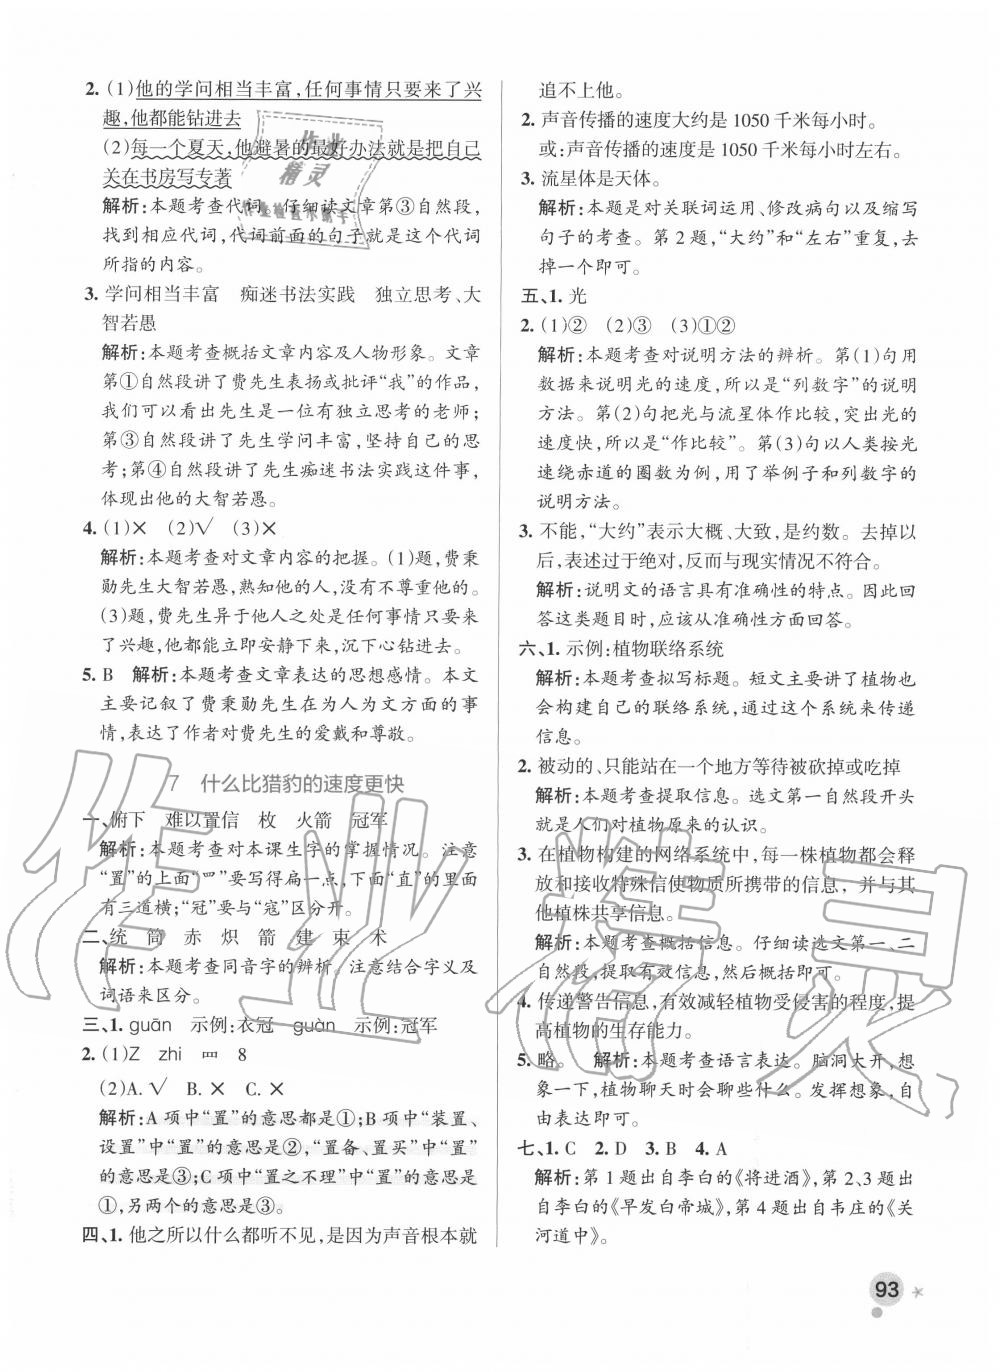 2. (1)他的学问相当丰富,任何事情只要来了兴
趣,他都能钻进去
(2)每一个夏天,他避暑的最好办法就是把自己
关在书房写专著
解析:本题考查代词。仔细读文章第③自然段,
找到相应代词,代词前面的句子就是这个代词
所指的内容。
3. 学问相当丰富 痴迷书法实践 独立思考、大
智若愚
解析:本题考查概括文章内容及人物形象。文章
第①自然段讲了费先生表扬或批评“我”的作品,
我们可以看出先生是一位有独立思考的老师;
第③自然段讲了先生学问丰富,坚持自己的思
考;第④自然段讲了先生痴迷书法实践这件事,
体现出他的大智若愚。
4. (1)× (2)√ (3)×
解析:本题考查对文章内容的把握。(1)题,费秉
勋先生大智若愚,熟知他的人,没有不尊重他的。
(3)题,费先生异于他人之处是任何事情只要来
了兴趣,他都能立即安静下来,沉下心钻进去。
5. B 解析:本题考查文章表达的思想感情。本文
主要记叙了费秉勋先生在为人为文方面的事
情,表达了作者对费先生的爱戴和尊敬。
7 什么比猎豹的速度更快
一、俯下 难以置信 枚 火箭 冠军
解析:本题考查对本课生字的掌握情况。注意
“置”的上面“罒”要写得扁一点,下面“直”的里面
有三道横;“冠”要与“寇”区分开。
二、统 筒 赤 炽 箭 建 束 术
解析:本题考查同音字的辨析。注意结合字义及
词语来区分。
三、1. guān 示例:衣冠 guàn 示例:冠军
2. (1)Z zhi 罒 8
(2)A.√ B.× C.×
解析:A 项中“置”的意思都是①;B 项中“装置、
设置”中“置”的意思是②,“置备、置买”中“置”
的意思是③;C 项中“置之不理”中“置”的意思是
①,另两个的意思是③。
四、1. 他之所以什么都听不见,是因为声音根本就
追不上他。
2. 声音传播的速度大约是 1050 千米每小时。
或:声音传播的速度是 1050 千米每小时左右。
3. 流星体是天体。
解析:本题是对关联词运用、修改病句以及缩写
句子的考查。第 2 题,“大约”和“左右”重复,去
掉一个即可。
五、1. 光
2. (1)② (2)③ (3)①②
解析:本题考查对说明方法的辨析。第(1)句用
数据来说明光的速度,所以是“列数字”的说明
方法。第(2)句把光与流星体作比较,突出光的
速度快,所以是“作比较”。第(3)句以人类按光
速绕赤道的圈数为例,用了举例子和列数字的
说明方法。
3. 不能,“大约”表示大概、大致,是约数。去掉以
后,表述过于绝对,反而与现实情况不符合。
解析:说明文的语言具有准确性的特点。因此回
答这类题目时,应该从准确性方面回答。
六、1. 示例:植物联络系统
解析:本题考查拟写标题。短文主要讲了植物也
会构建自己的联络系统,通过这个系统来传递
信息。
2. 被动的、只能站在一个地方等待被砍掉或吃掉
解析:本题考查提取信息。选文第一自然段开头
就是人们对植物原来的认识。
3. 在植物构建的网络系统中,每一株植物都会释
放和接收特殊信使物质所携带的信息,并与其
他植株共享信息。
解析:本题考查概括信息。仔细读选文第一、二
自然段,提取有效信息,然后概括即可。
4. 传递警告信息,有效减轻植物受侵害的程度,提
高植物的生存能力。
5. 略。 解析:本题考查语言表达。脑洞大开,想
象一下,植物聊天时会聊些什么。发挥想象,自
由表达即可。
七、1. C 2. D 3. B 4. A
解析:第 1 题出自李白的《将进酒》,第 2、3 题出
自李白的《早发白帝城》,第 4 题出自韦庄的《关
河道中》。
93
作业
精灵
作业精灵